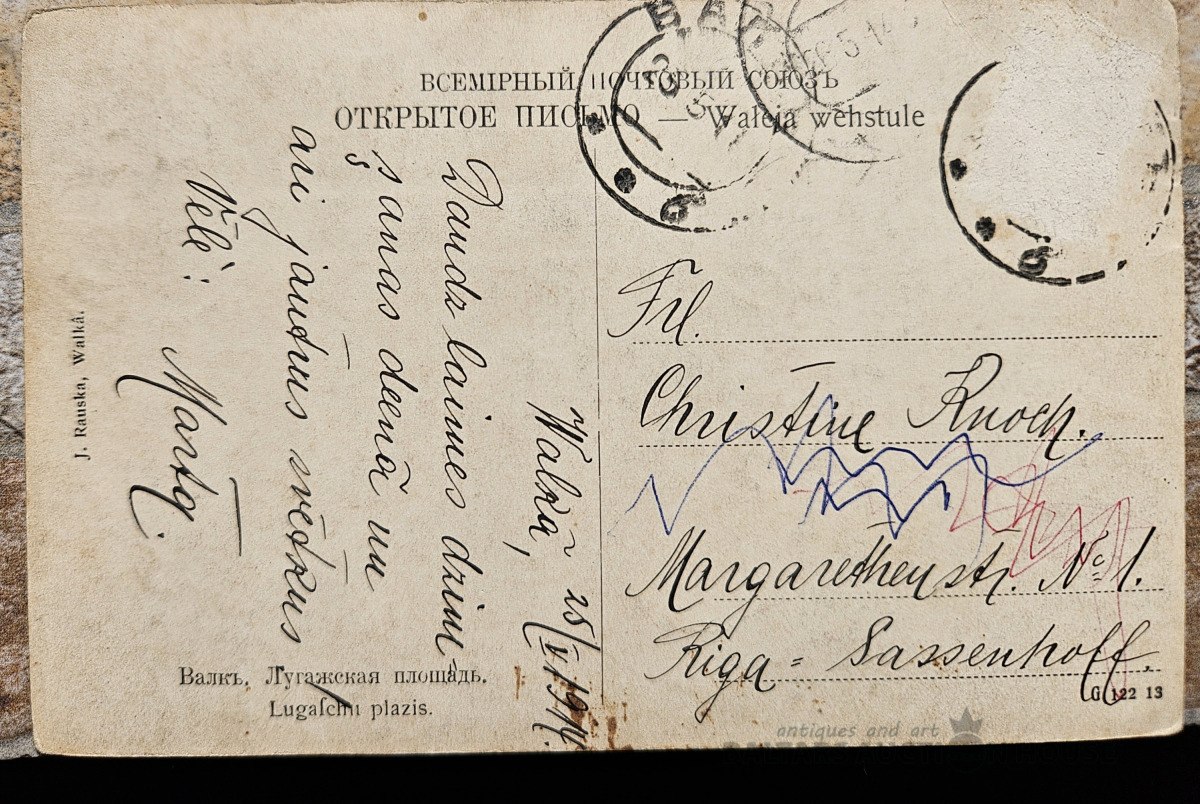 ВСЕМІРНЫЙ ПОЧТОВЫЙ СОЮЗЪ
ОТКРЫТОЕ ПИСЬМО — Waleja wehstule
26 5 14
Walkā, 25/V 1914.
Daudz laimes dzim
šanas deenā un
ari jautrus svētkus
Vēlē:
Marta.
Frl.
Christine Knoch.
Margarethenstr. № 1.
Riga = Sassenhoff.
Валкъ. Лугажская площадь.
Lugaſchu plazis.
J. Rauska, Walkâ.
G 122 13
antiques and art